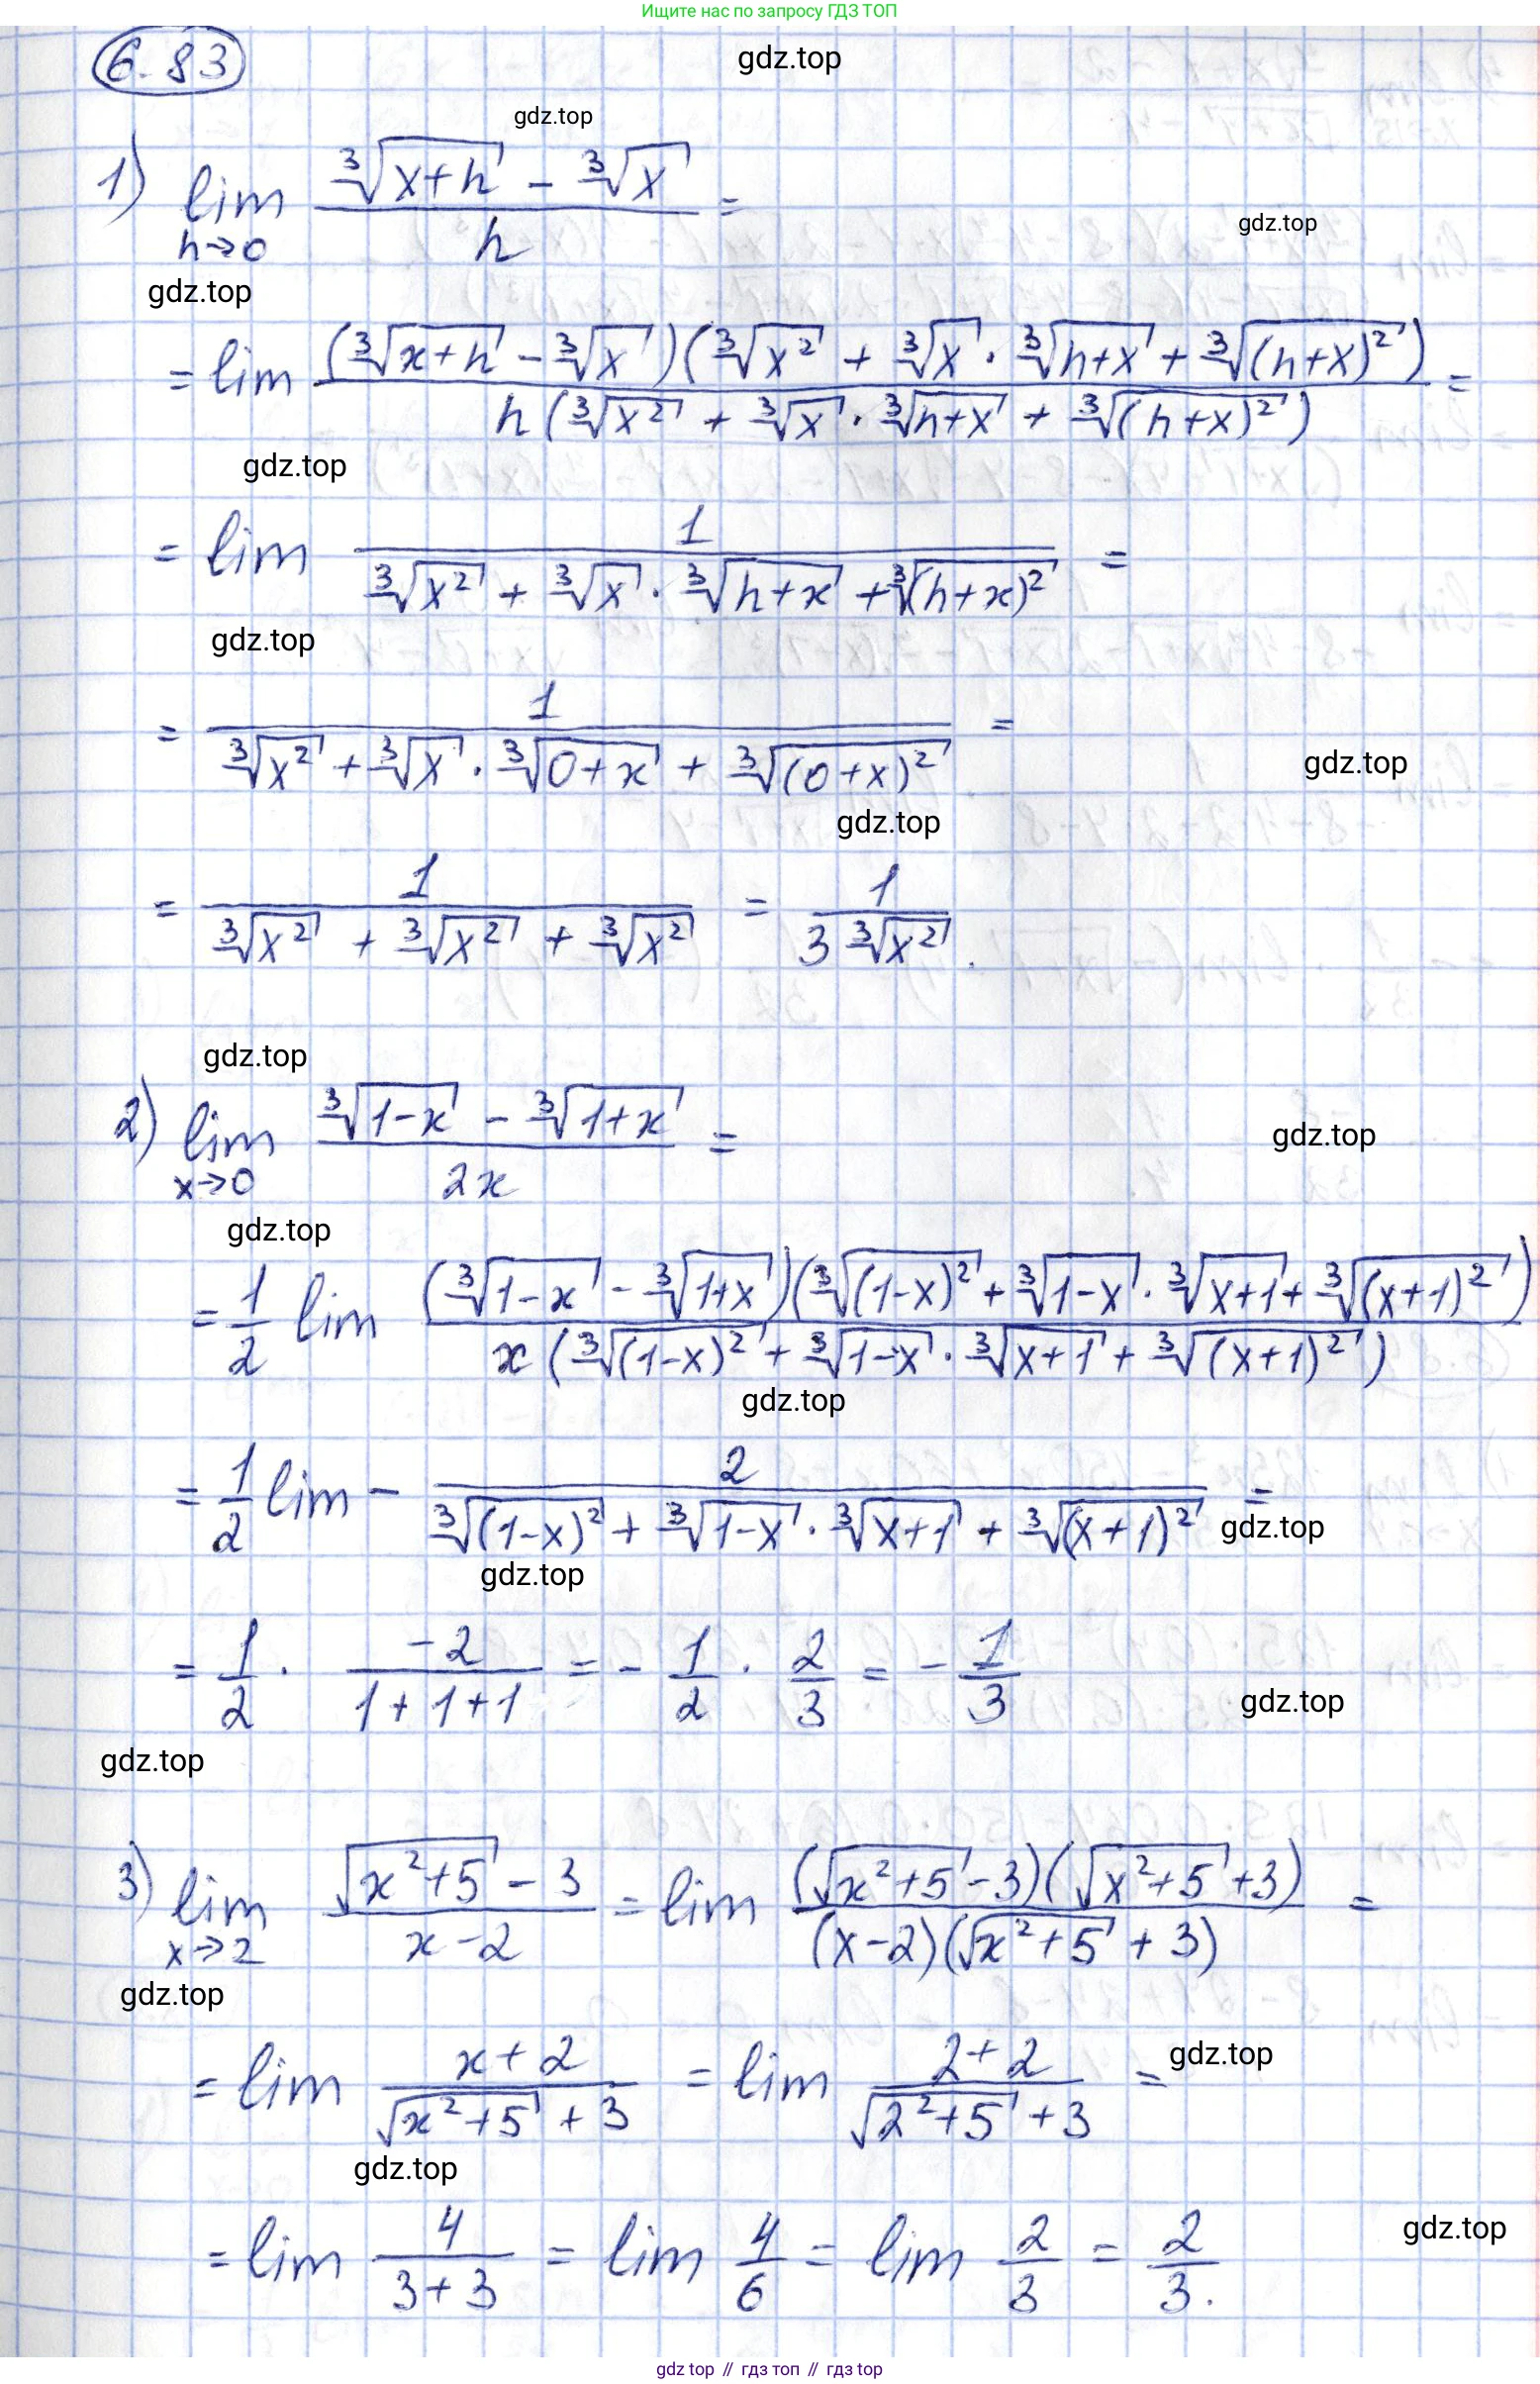 Ищите нас по запросу ГДЗ ТОП
6.83
gdz.top
gdz.top
1) lim_{h→0} (∛(x+h) - ∛x)/h =
gdz.top
gdz.top
= lim ((∛(x+h) - ∛x)(∛(x²) + ∛x · ∛(h+x) + ∛((h+x)²)))/(h(∛(x²) + ∛x · ∛(h+x) + ∛((h+x)²))) =
gdz.top
= lim 1/(∛(x²) + ∛x · ∛(h+x) + ∛((h+x)²)) =
gdz.top
= 1/(∛(x²) + ∛x · ∛(0+x) + ∛((0+x)²)) =
gdz.top
gdz.top
= 1/(∛(x²) + ∛(x²) + ∛(x²)) = 1/(3∛(x²)).
gdz.top
2) lim_{x→0} (∛(1-x) - ∛(1+x))/(2x) =
gdz.top
gdz.top
= 1/2 lim ((∛(1-x) - ∛(1+x))(∛((1-x)²) + ∛(1-x) · ∛(x+1) + ∛((x+1)²)))/(x(∛((1-x)²) + ∛(1-x) · ∛(x+1) + ∛((x+1)²)))
gdz.top
= 1/2 lim - 2/(∛((1-x)²) + ∛(1-x) · ∛(x+1) + ∛((x+1)²)) =
gdz.top
gdz.top
= 1/2 · (-2)/(1+1+1) = - 1/2 · 2/3 = - 1/3
gdz.top
gdz.top
3) lim_{x→2} (√(x²+5) - 3)/(x-2) = lim ((√(x²+5) - 3)(√(x²+5) + 3))/((x-2)(√(x²+5) + 3)) =
gdz.top
= lim (x+2)/(√(x²+5) + 3) = lim (2+2)/(√(2²+5) + 3) =
gdz.top
gdz.top
= lim 4/(3+3) = lim 4/6 = lim 2/3 = 2/3.
gdz.top
gdz top // гдз топ // gdz top